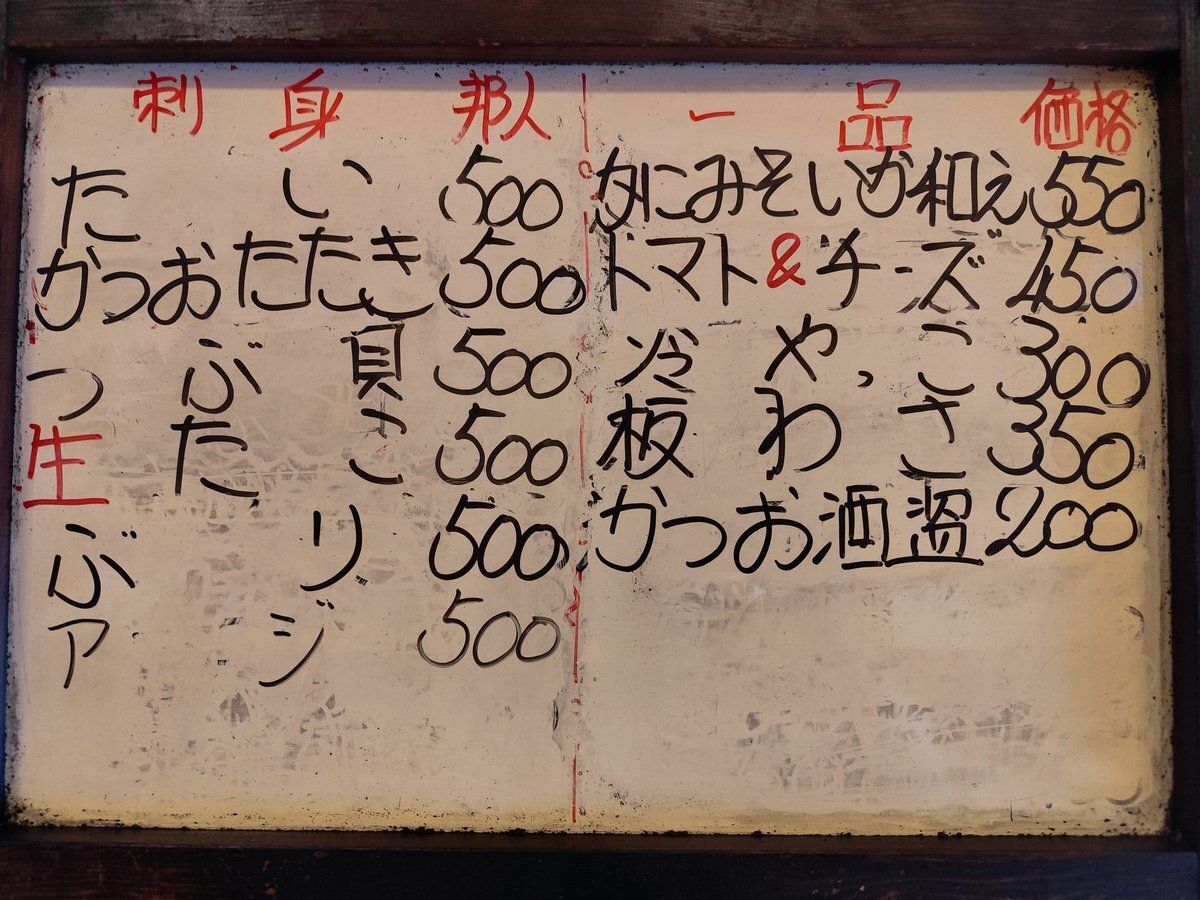 刺身 邦人
たい 500
かつおたたき 500
つぶ貝 500
生たこ 500
ぶり 500
アジ 500
一品 価格
かにみそいか和え 550
トマト&チーズ 450
冷やっこ 300
板わさ 350
かつお酒盗 200